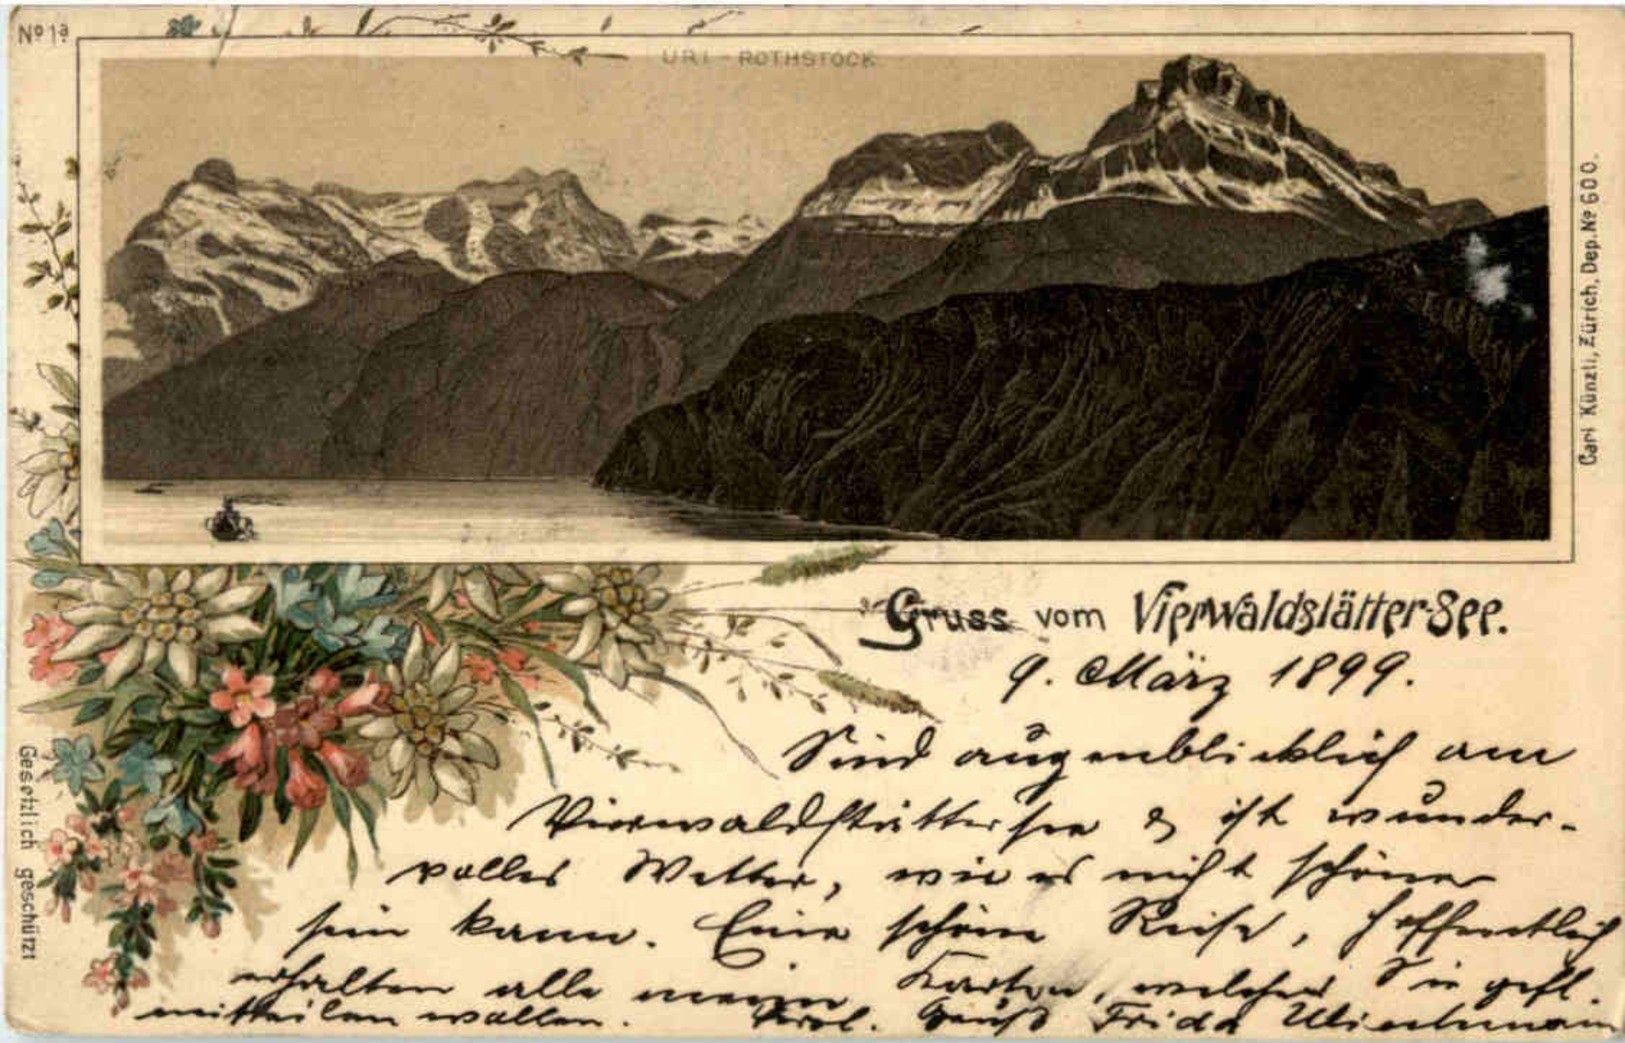 No 1a
URI - ROTHSTOCK
Carl Künzli, Zürich, Dep. No 600.
Gesetzlich geschützt
Gruss vom Vierwaldstätter-See.
9. März 1899.
Sind augenblicklich am
Vierwaldstättersee & ist wunder-
volles Wetter, wie es nicht schöner
sein kann. Eine schöne Reise, hoffentlich
erhalten alle meine Karten, welches Sie gefl.
mitteilen wollen. Gruß Frida